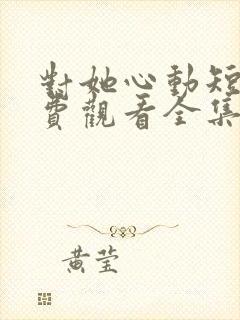 對她心動短
費觀看全集
黃莹